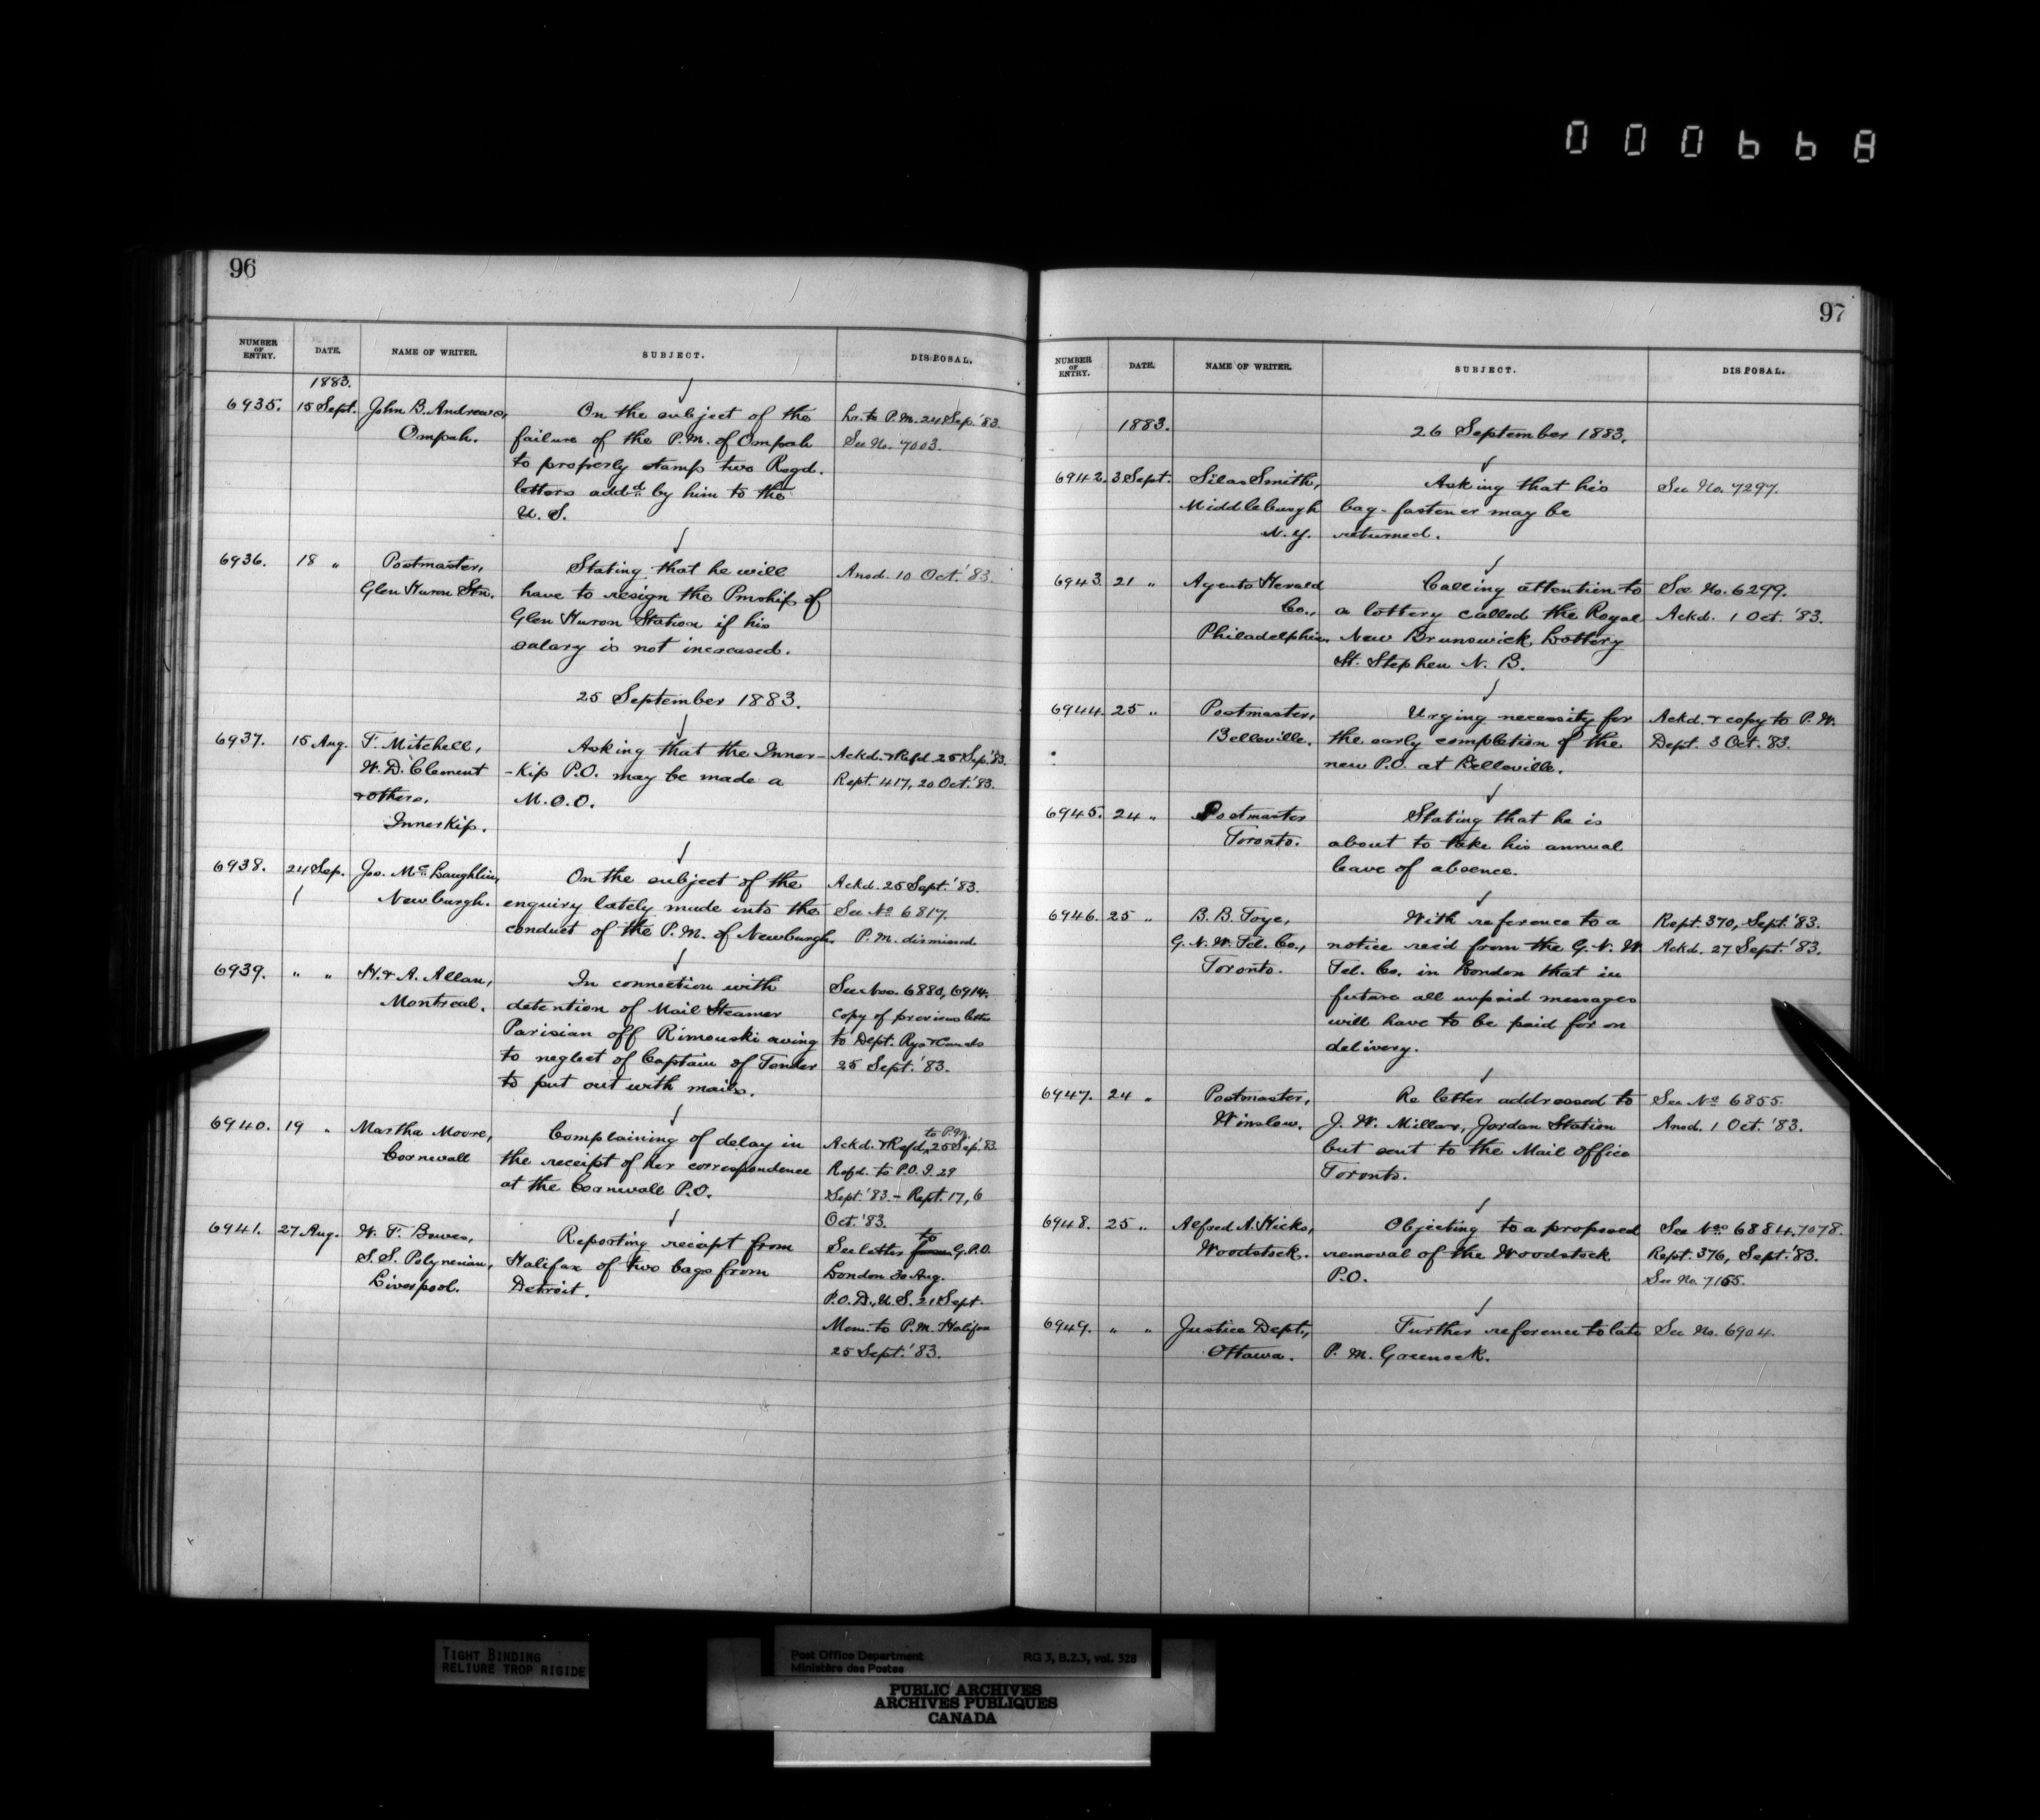 000668
96
NUMBER OF ENTRY. DATE. NAME OF WRITER. SUBJECT. DISPOSAL.
1883.
6935. 15 Sept. John B. Andrews, On the subject of the Lr. to P.M. 24 Sep. '83.
Ompah. failure of the P.M. of Ompah See No. 7003.
to properly stamp two Regd.
letters addd. by him to the
U. S.
6936. 18 " Postmaster, Stating that he will Ansd. 10 Oct. '83.
Glen Huron Stn. have to resign the Pmship of
Glen Huron Station if his
salary is not increased.
25 September 1883.
6937. 15 Aug. T. Mitchell, Asking that the Inner- Ackd. & Refd. 25 Sep. '83.
W. D. Clement -Kip P.O. may be made a Rept. 417, 20 Oct. '83.
& others, M.O.O.
InnerKip.
6938. 24 Sep. Jos. McLaughlin, On the subject of the Ackd. 25 Sept. '83.
Newburgh. enquiry lately made into the See No 6817.
conduct of the P.M. of Newburgh. P.M. dismissed
6939. " " H. & A. Allan, In connection with See Nos. 6880, 6914.
Montreal. detention of Mail Steamer Copy of previous letter
Parisian off Rimouski owing to Dept. Rys & Canals
to neglect of Captain of Tender 25 Sept. '83.
to put out with mails.
6940. 19 " Martha Moore, Complaining of delay in Ackd. & Refd. to P.M. 25 Sep. '83.
Cornwall the receipt of her correspondence Refd. to P.O.I. 29
at the Cornwall P.O. Sept. '83. - Rept. 17, 6
Oct. '83.
6941. 27 Aug. W. F. Bowes, Reporting receipt from See letter from to G.P.O.
S.S. Polynesian, Halifax of two bags from London 30 Aug.
Liverpool. Detroit. P.O.D., U.S. 21 Sept.
Mem. to P.M. Halifax
25 Sept. '83.
97
NUMBER OF ENTRY. DATE. NAME OF WRITER. SUBJECT. DISPOSAL.
1883. 26 September 1883.
6942. 3 Sept. Silas Smith, Asking that his See No. 7297.
Middleburgh bag-fastener may be
N.Y. returned.
6943. 21 " Agents Herald Calling attention to See No. 6299.
Co., a lottery called the Royal Ackd. 1 Oct. '83.
Philadelphia. New Brunswick Lottery
St. Stephen N. B.
6944. 25 " Postmaster, Urging necessity for Ackd. & copy to P.W.
Belleville. the early completion of the Dept. 3 Oct. '83.
new P.O. at Belleville.
6945. 24 " Postmaster Stating that he is
Toronto. about to take his annual
leave of absence.
6946. 25 " B. B. Toye, With reference to a Rept. 370, Sept. '83.
G. N. W. Tel. Co., notice recd from the G. N. W. Ackd. 27 Sept. '83.
Toronto. Tel. Co. in London that in
future all unpaid messages
will have to be paid for on
delivery.
6947. 24 " Postmaster, Re letter addressed to See No 6855.
Winslow. J. W. Millar, Jordan Station Ansd. 1 Oct. '83.
but sent to the Mail Office
Toronto.
6948. 25 " Alfred A. Hicks, Objecting to a proposed See Nos 6884, 7078.
Woodstock. removal of the Woodstock Rept. 376, Sept. '83.
P.O. See No. 7165.
6949. " " Justice Dept., Further reference to late See No. 6904.
Ottawa. P. M. Greenock.
TIGHT BINDING
RELIURE TROP RIGIDE
Post Office Department RG 3, B.2.3, vol. 528
Ministère des Postes
PUBLIC ARCHIVES
ARCHIVES PUBLIQUES
CANADA